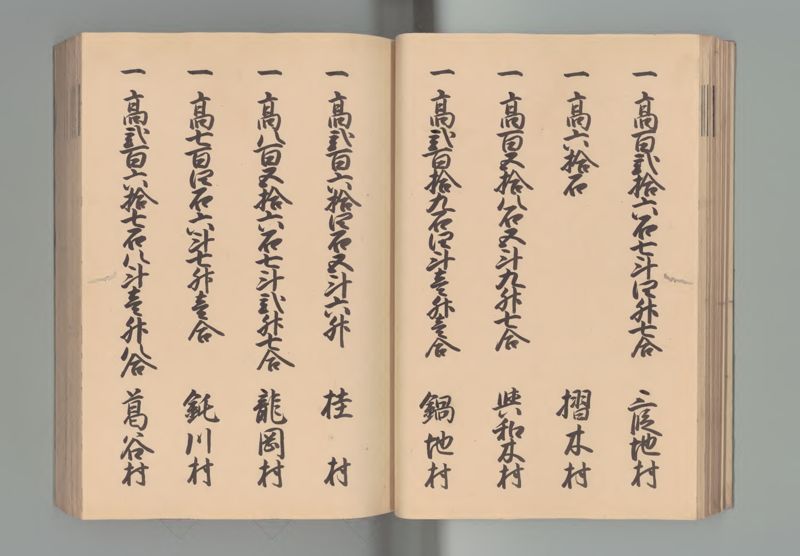 一 高百弐拾六石七斗四升七合 三段地村
一 高六拾石 摺木村
一 高百五拾八石五斗九升七合 與和木村
一 高弐百拾九石四斗壱升壱合 鍋地村
一 高弐百六拾四石五斗六升 桂村
一 高八百五拾六石七斗弐升七合 龍岡村
一 高七百四石六斗七升壱合 鈍川村
一 高弐百六拾七石八斗壱升八合 葛谷村